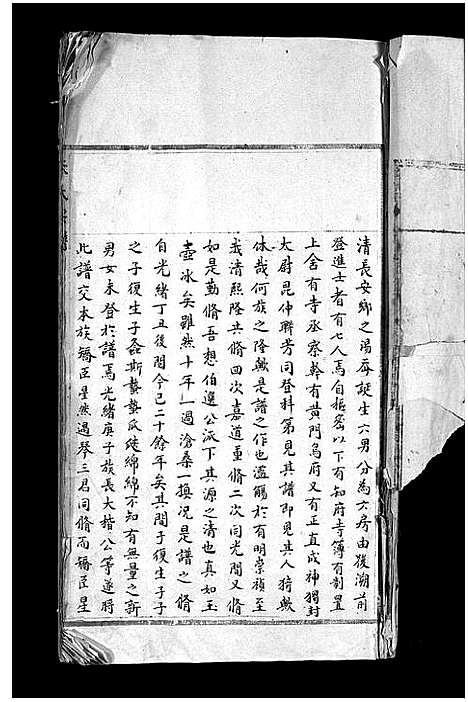 清長安鄉之湯齊誕生六男分為六房由後溯前
登進士者有七人焉自樞密以下有知府寺簿有制置
上舍有寺丞察幹有黃門烏府又有正直成神獨封
太尉昆仲聯芳同登科第見其譜即見其人猗歟
休哉何族之隆歟是譜之作也濫觴於有明崇禎至
我清熙隆共脩四次嘉道重脩二次同光間又脩
如是勤脩吾想伯遠公派下其源之清也真如玉
壺冰矣雖然十年一過滄桑一換况是譜之脩
自光緒丁丑後閱今已二十餘年矣其間子復生子子
之子復生子螽斯蟄蟄瓜瓞綿綿不知有無量之新
男女未登於譜焉光緒庚子族長大揩公等遂將
此譜交本族臣星然過琴三君同脩而臣星